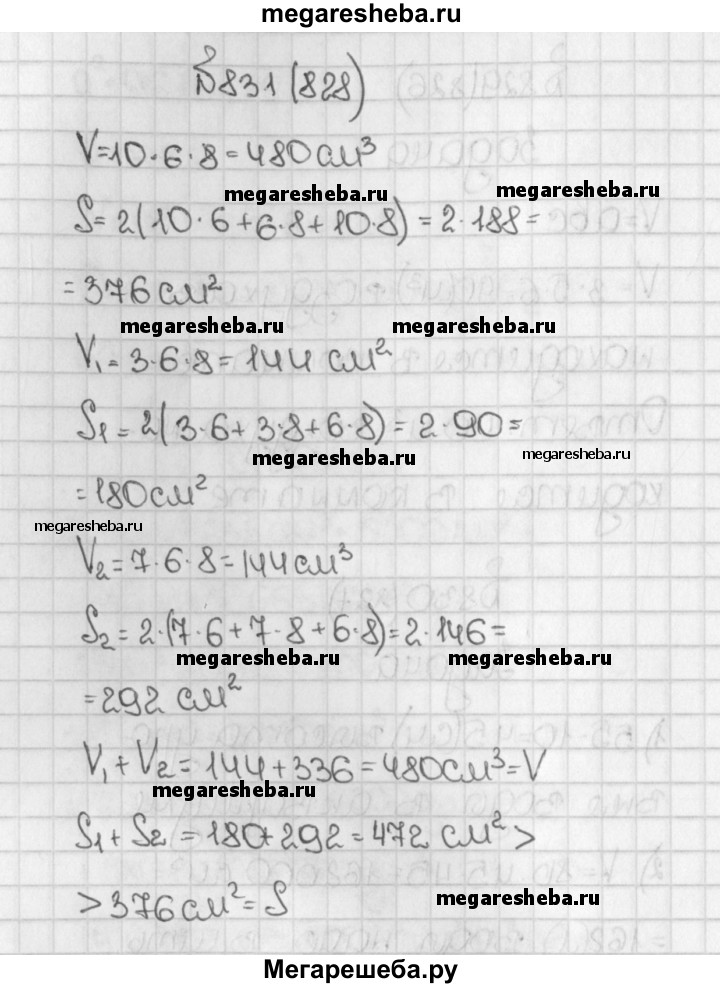 megaresheba.ru
№831 (828)
V=10·6·8=480см³
megaresheba.ru megaresheba.ru
S=2(10·6+6·8+10·8)=2·188=
=376см²
megaresheba.ru megaresheba.ru
V₁=3·6·8=144 см²
S₁=2(3·6+3·8+6·8)=2·90=
megaresheba.ru megaresheba.ru
=180см²
megaresheba.ru
V₂=7·6·8=144см³
S₂=2·(7·6+7·8+6·8)=2·146=
megaresheba.ru megaresheba.ru
=292 см²
V₁+V₂=144+336=480см³=V
megaresheba.ru
S₁+S₂=180+292=472 см²>
>376см²=S
megaresheba.ru
Мегарешеба.ру